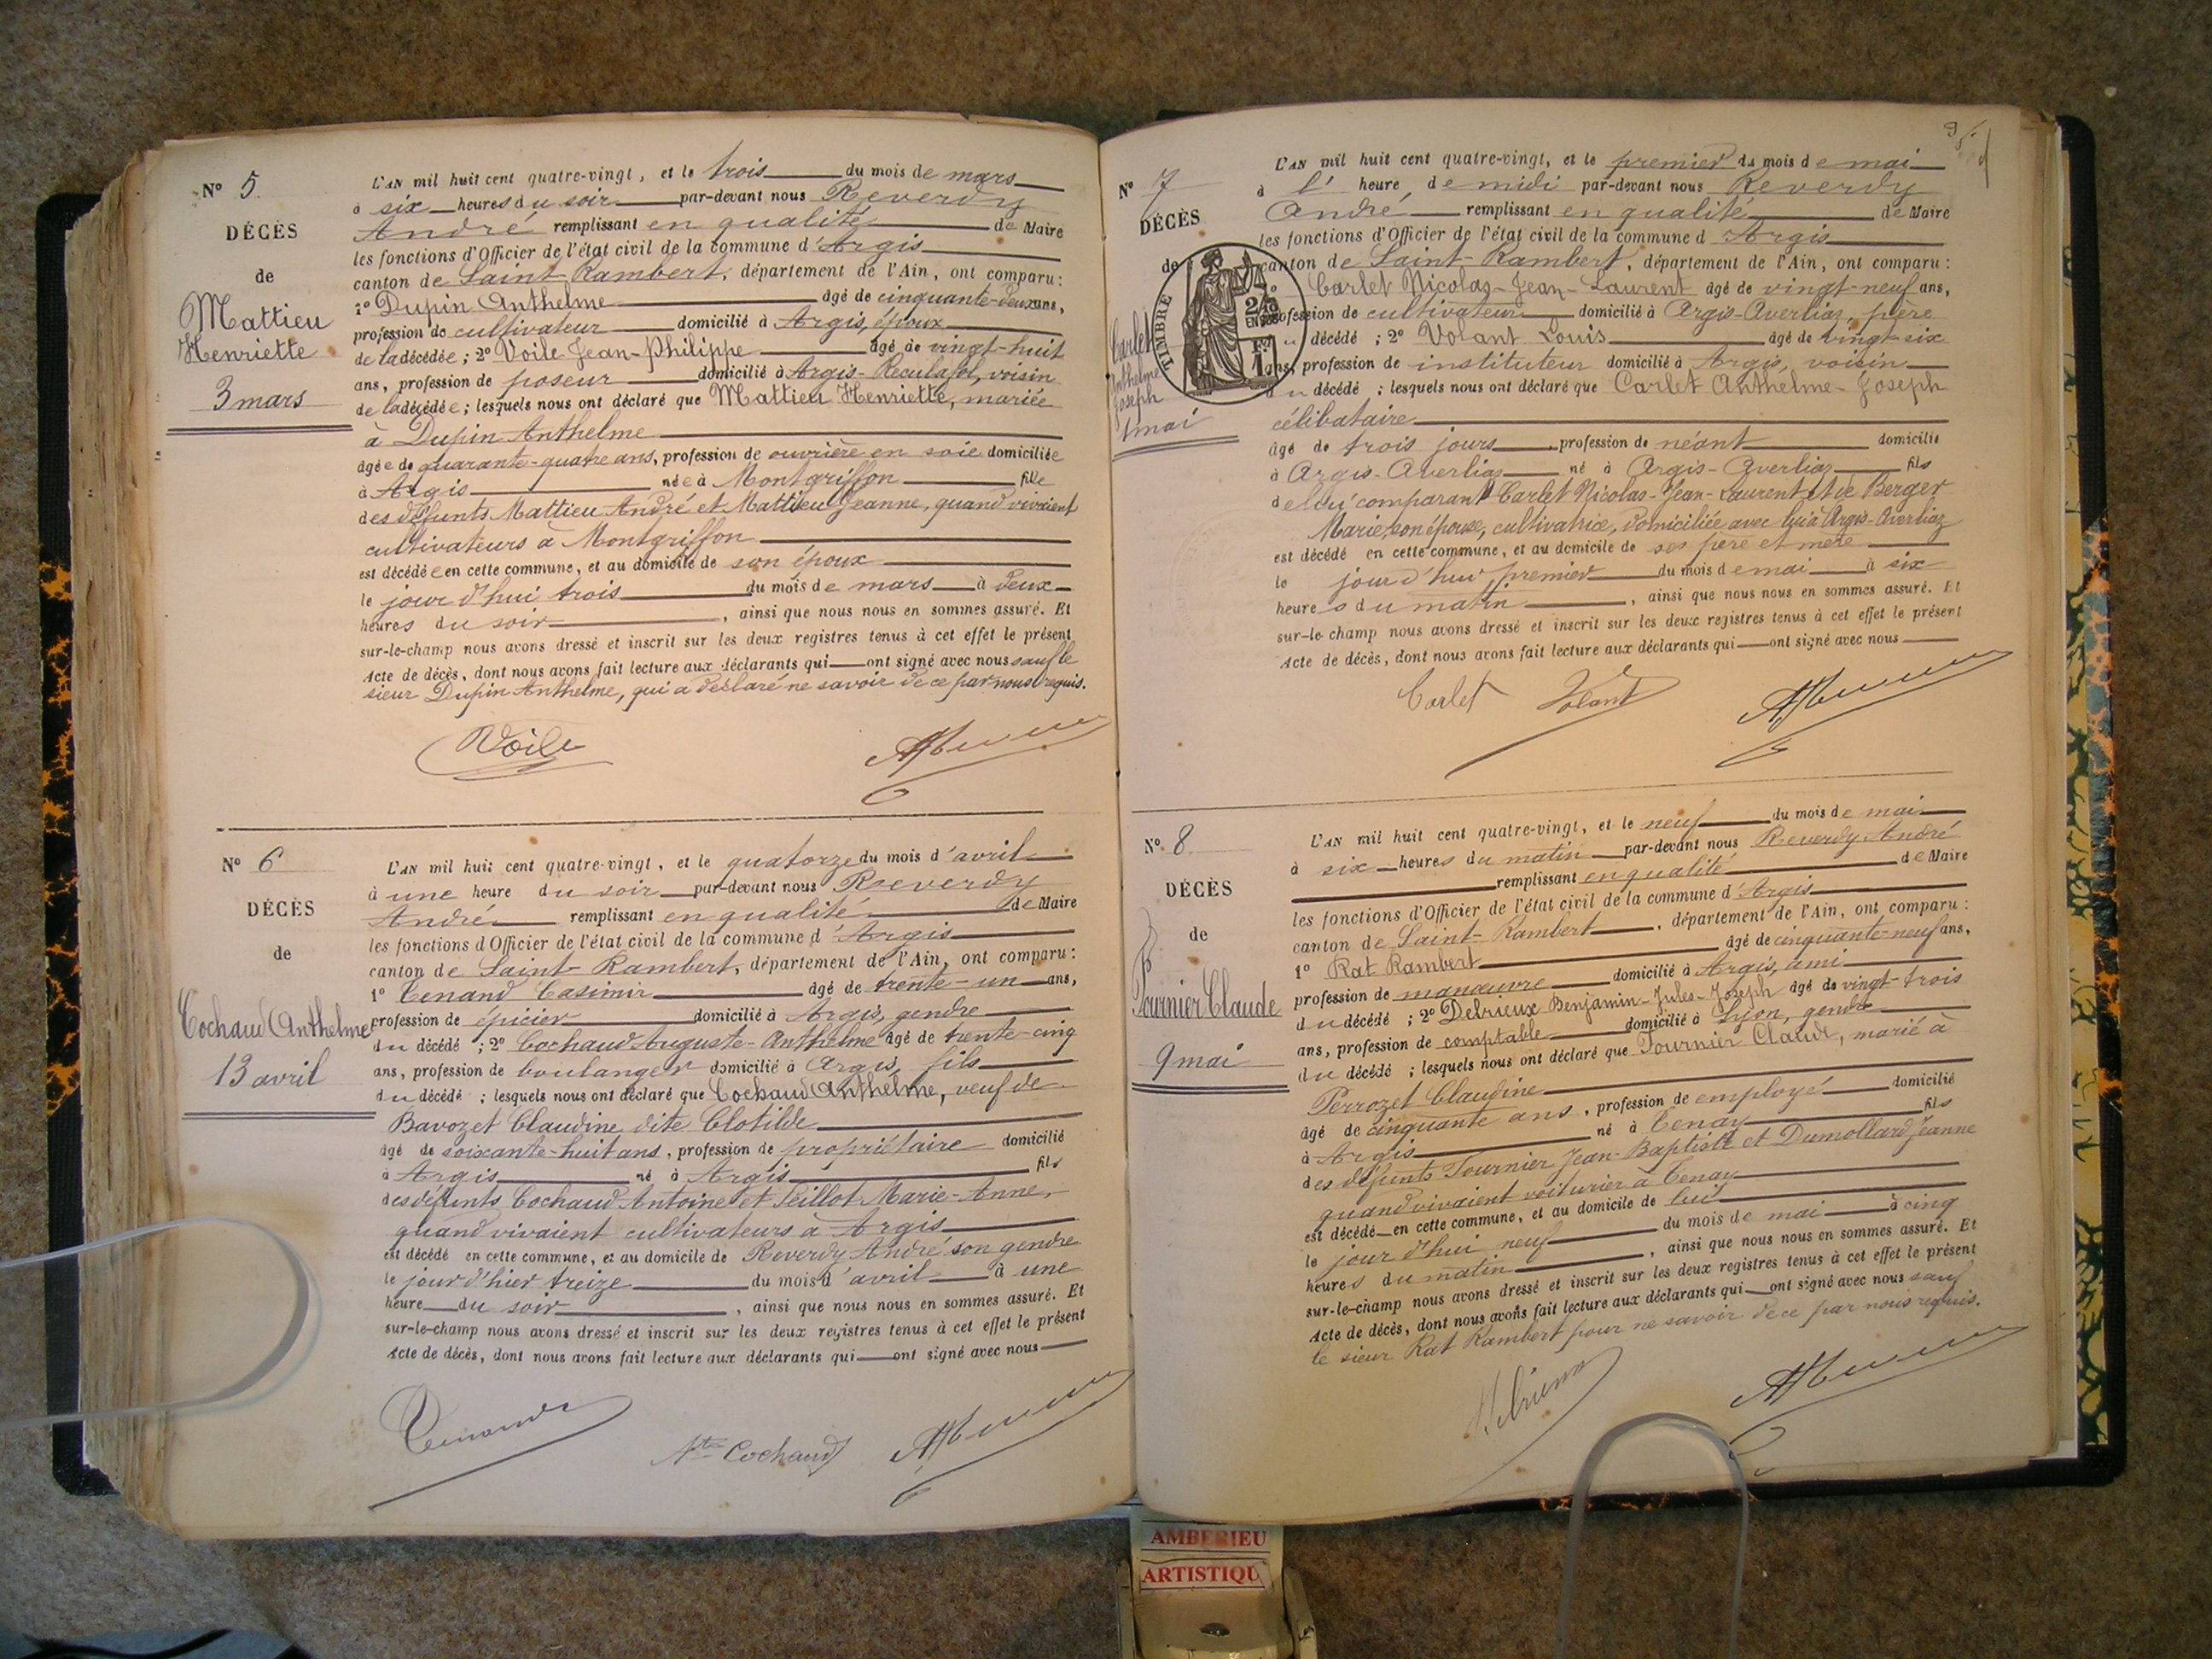 N° 5
DÉCÈS
de
Mattieu
Henriette
3 mars
L'AN mil huit cent quatre-vingt, et le trois du mois de mars
à six heures du soir par-devant nous Reverdy
André remplissant en qualité de Maire
les fonctions d'Officier de l'état civil de la commune d'Argis
canton de Saint-Rambert, département de l'Ain, ont comparu :
1° Dupin Anthelme âgé de cinquante-deux ans,
profession de cultivateur domicilié à Argis, époux
de la décédée ; 2° Voile Jean-Philippe âgé de vingt-huit
ans, profession de poseur domicilié à Argis-Reculafol, voisin
de la décédée ; lesquels nous ont déclaré que Mattieu Henriette, mariée
à Dupin Anthelme
âgée de quarante-quatre ans, profession de ouvrière en soie domiciliée
à Argis née à Montgriffon fille
des défunts Mattieu André et Mattieu Jeanne, quand vivaient
cultivateurs à Montgriffon
est décédée en cette commune, et au domicile de son époux
le jour d'hui trois du mois de mars à deux
heures du soir, ainsi que nous nous en sommes assuré. Et
sur-le-champ nous avons dressé et inscrit sur les deux registres tenus à cet effet le présent
Acte de décès, dont nous avons fait lecture aux déclarants qui ont signé avec nous sauf le
sieur Dupin Anthelme, qui a déclaré ne savoir de ce par nous requis.
Voile
N° 6
DÉCÈS
de
Cochaud Anthelme
13 avril
L'AN mil huit cent quatre-vingt, et le quatorze du mois d'avril
à une heure du soir par-devant nous Reverdy
André remplissant en qualité de Maire
les fonctions d'Officier de l'état civil de la commune d'Argis
canton de Saint-Rambert, département de l'Ain, ont comparu :
1° Tenand Casimir âgé de trente-un ans,
profession de épicier domicilié à Argis, gendre
du décédé ; 2° Cochaud Auguste-Anthelme âgé de trente-cinq
ans, profession de boulanger domicilié à Argis, fils
du décédé ; lesquels nous ont déclaré que Cochaud Anthelme, veuf de
Bavozet Claudine dite Clotilde
âgé de soixante-huit ans, profession de propriétaire domicilié
à Argis né à Argis fils
des défunts Cochaud Antoine et Teillot Marie-Anne,
quand vivaient cultivateurs à Argis
est décédé en cette commune, et au domicile de Reverdy André son gendre
le jour d'hier treize du mois d'avril à une
heure du soir, ainsi que nous nous en sommes assuré. Et
sur-le-champ nous avons dressé et inscrit sur les deux registres tenus à cet effet le présent
Acte de décès, dont nous avons fait lecture aux déclarants qui ont signé avec nous
Tenand
Ate Cochaud
N° 7
DÉCÈS
de
Carlet
Anthelme
Joseph
1 mai
TIMBRE
L'AN mil huit cent quatre-vingt, et le premier du mois de mai
à l'heure de midi par-devant nous Reverdy
André remplissant en qualité de Maire
les fonctions d'Officier de l'état civil de la commune d'Argis
canton de Saint-Rambert, département de l'Ain, ont comparu :
Carlet Nicolas-Jean-Laurent âgé de vingt-neuf ans,
profession de cultivateur domicilié à Argis-Averliaz, père
du décédé ; 2° Volant Louis âgé de vingt-six
ans, profession de instituteur domicilié à Argis, voisin
du décédé ; lesquels nous ont déclaré que Carlet Anthelme-Joseph
célibataire
âgé de trois jours profession de néant domicilié
à Argis-Averliaz né à Argis-Averliaz fils
de lui comparant Carlet Nicolas-Jean-Laurent et de Berger
Marie, son épouse, cultivatrice, domiciliée avec lui à Argis-Averliaz
est décédé en cette commune, et au domicile de ses père et mère
le jour d'hui premier du mois de mai à six
heures du matin, ainsi que nous nous en sommes assuré. Et
sur-le-champ nous avons dressé et inscrit sur les deux registres tenus à cet effet le présent
Acte de décès, dont nous avons fait lecture aux déclarants qui ont signé avec nous
Carlet Volant
N° 8
DÉCÈS
de
Fournier Claude
9 mai
L'AN mil huit cent quatre-vingt, et le neuf du mois de mai
à six heures du matin par-devant nous Reverdy André
remplissant en qualité de Maire
les fonctions d'Officier de l'état civil de la commune d'Argis
canton de Saint-Rambert, département de l'Ain, ont comparu :
1° Rat Rambert âgé de cinquante-neuf ans,
profession de manœuvre domicilié à Argis, ami
du décédé ; 2° Debrieux Benjamin-Jules-Joseph âgé de vingt-trois
ans, profession de comptable domicilié à Lyon, gendre
du décédé ; lesquels nous ont déclaré que Fournier Claude, marié à
Perrozet Claudine
âgé de cinquante ans, profession de employé domicilié
à Argis né à Tenay fils
des défunts Fournier Jean-Baptiste et Dumollard Jeanne
quand vivaient voiturier à Tenay
est décédé en cette commune, et au domicile de lui
le jour d'hui neuf du mois de mai à cinq
heures du matin, ainsi que nous nous en sommes assuré. Et
sur-le-champ nous avons dressé et inscrit sur les deux registres tenus à cet effet le présent
Acte de décès, dont nous avons fait lecture aux déclarants qui ont signé avec nous sauf
le sieur Rat Rambert pour ne savoir de ce par nous requis.
AMBERIEU
ARTISTIQU